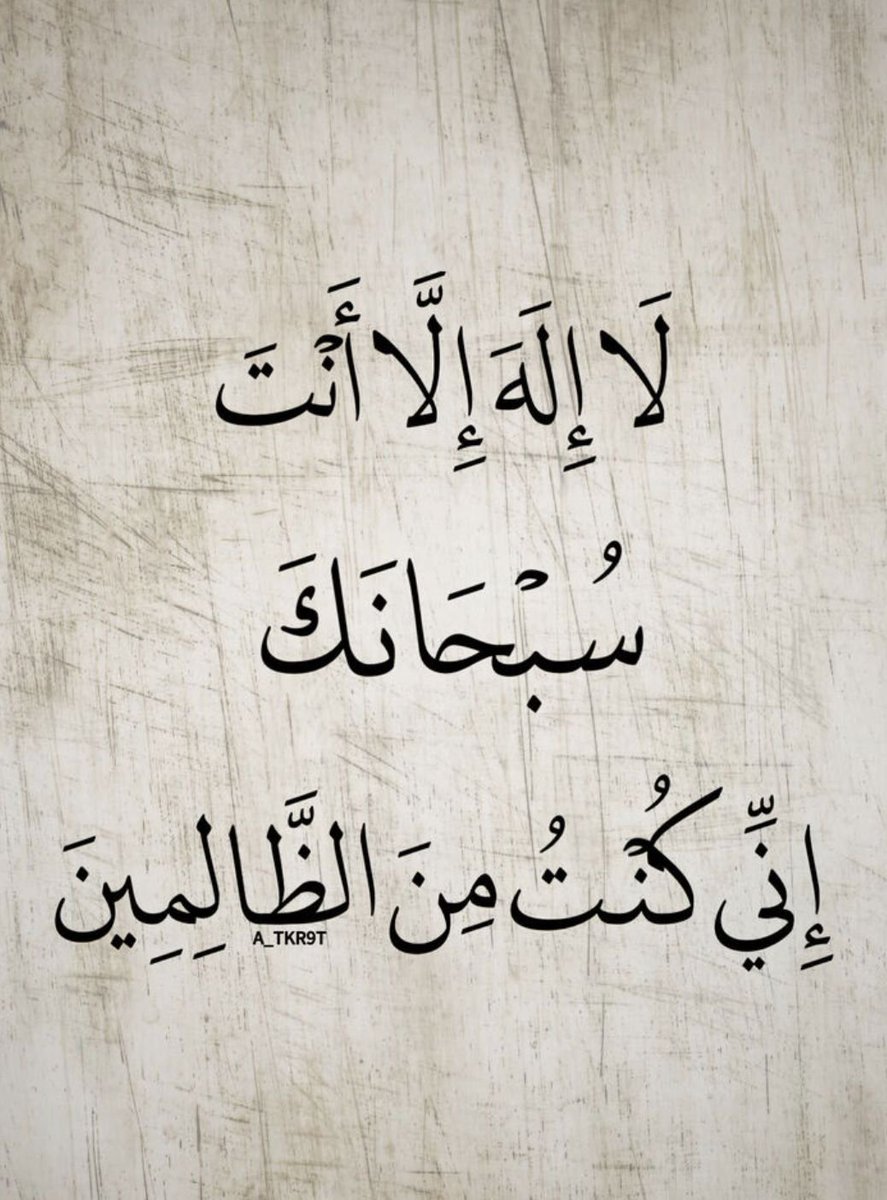 لَا إِلَهَ إِلَّا أَنْتَ
سُبْحَانَكَ
إِنِّي كُنْتُ مِنَ الظَّالِمِينَ
A_TKR9T